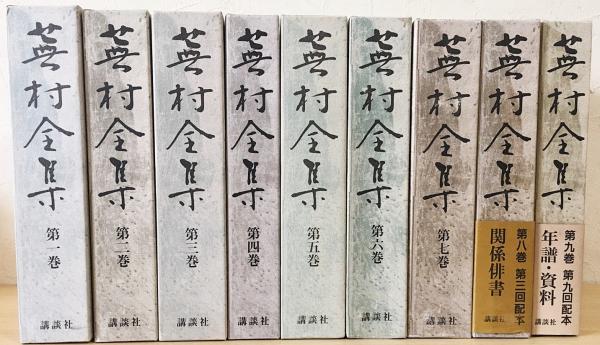 蕪村全集
第一巻
講談社
蕪村全集
第二巻
講談社
蕪村全集
第三巻
講談社
蕪村全集
第四巻
講談社
蕪村全集
第五巻
講談社
蕪村全集
第六巻
講談社
蕪村全集
第七巻
講談社
蕪村全集
第八巻 第三回配本
関係俳書
講談社
蕪村全集
第九巻 第九回配本
年譜・資料
講談社